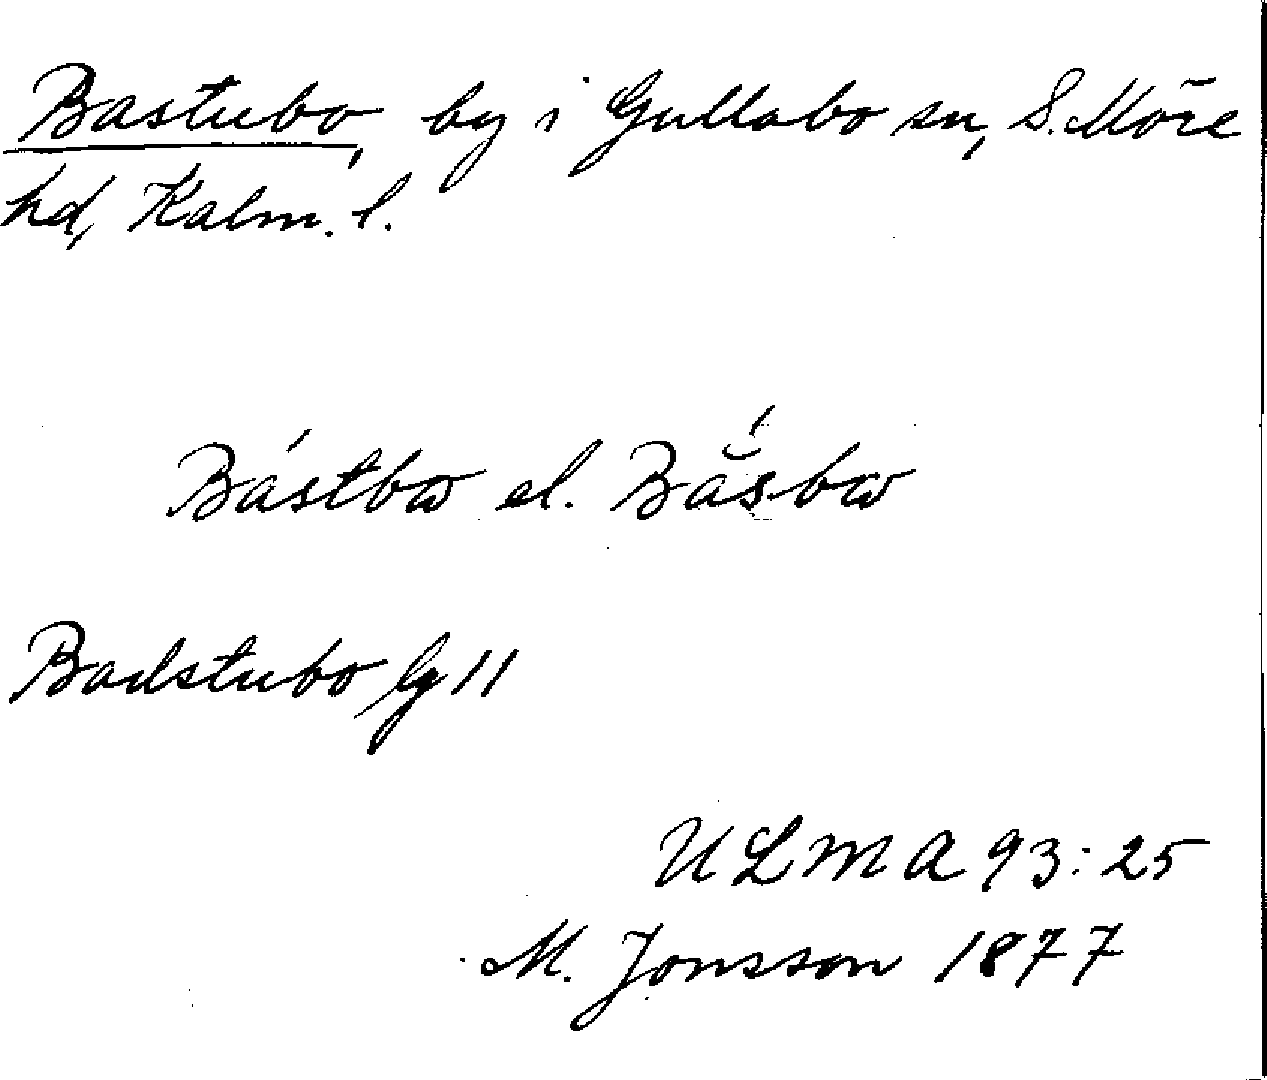 Bastubo, by i Gullabo sn, S. Möre
hd, Kalm. l.
Bástbω el. Bä́sbω
Badstubo lg 11
ULMA 93:25
M. Jonsson 1877